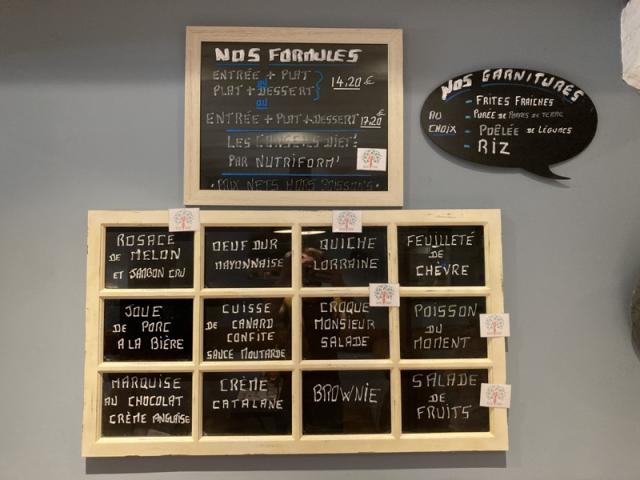 NOS FORMULES
ENTRÉE + PLAT
ou
PLAT + DESSERT
14,20 €
ou
ENTRÉE + PLAT + DESSERT 17,20 €
LES CONSEILS DIET'
PAR NUTRIFORM'
PRIX NETS HORS BOISSONS
NOS GARNITURES
AU
CHOIX
- FRITES FRAICHES
- PURÉE DE POMMES DE TERRE
- POÊLÉE DE LÉGUMES
- RIZ
ROSACE
DE MELON
ET JAMBON CRU
OEUF DUR
MAYONNAISE
QUICHE
LORRAINE
FEUILLETÉ
DE
CHÈVRE
JOUE
DE PORC
A LA BIÈRE
CUISSE
DE CANARD
CONFITE
SAUCE MOUTARDE
CROQUE
MONSIEUR
SALADE
POISSON
DU
MOMENT
MARQUISE
AU CHOCOLAT
CRÈME ANGLAISE
CRÈME
CATALANE
BROWNIE
SALADE
DE
FRUITS